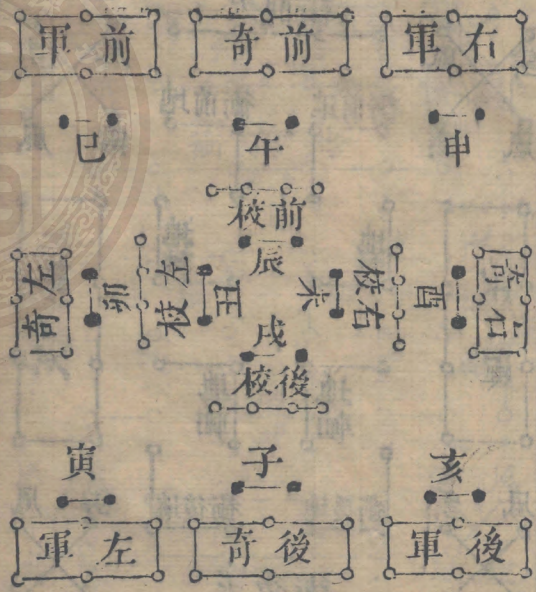 右軍
前奇
前軍
申
午
巳
前校
辰
右奇
酉
右校
未
丑
左校
卯
左奇
戌
後校
亥
子
寅
後軍
後奇
左軍